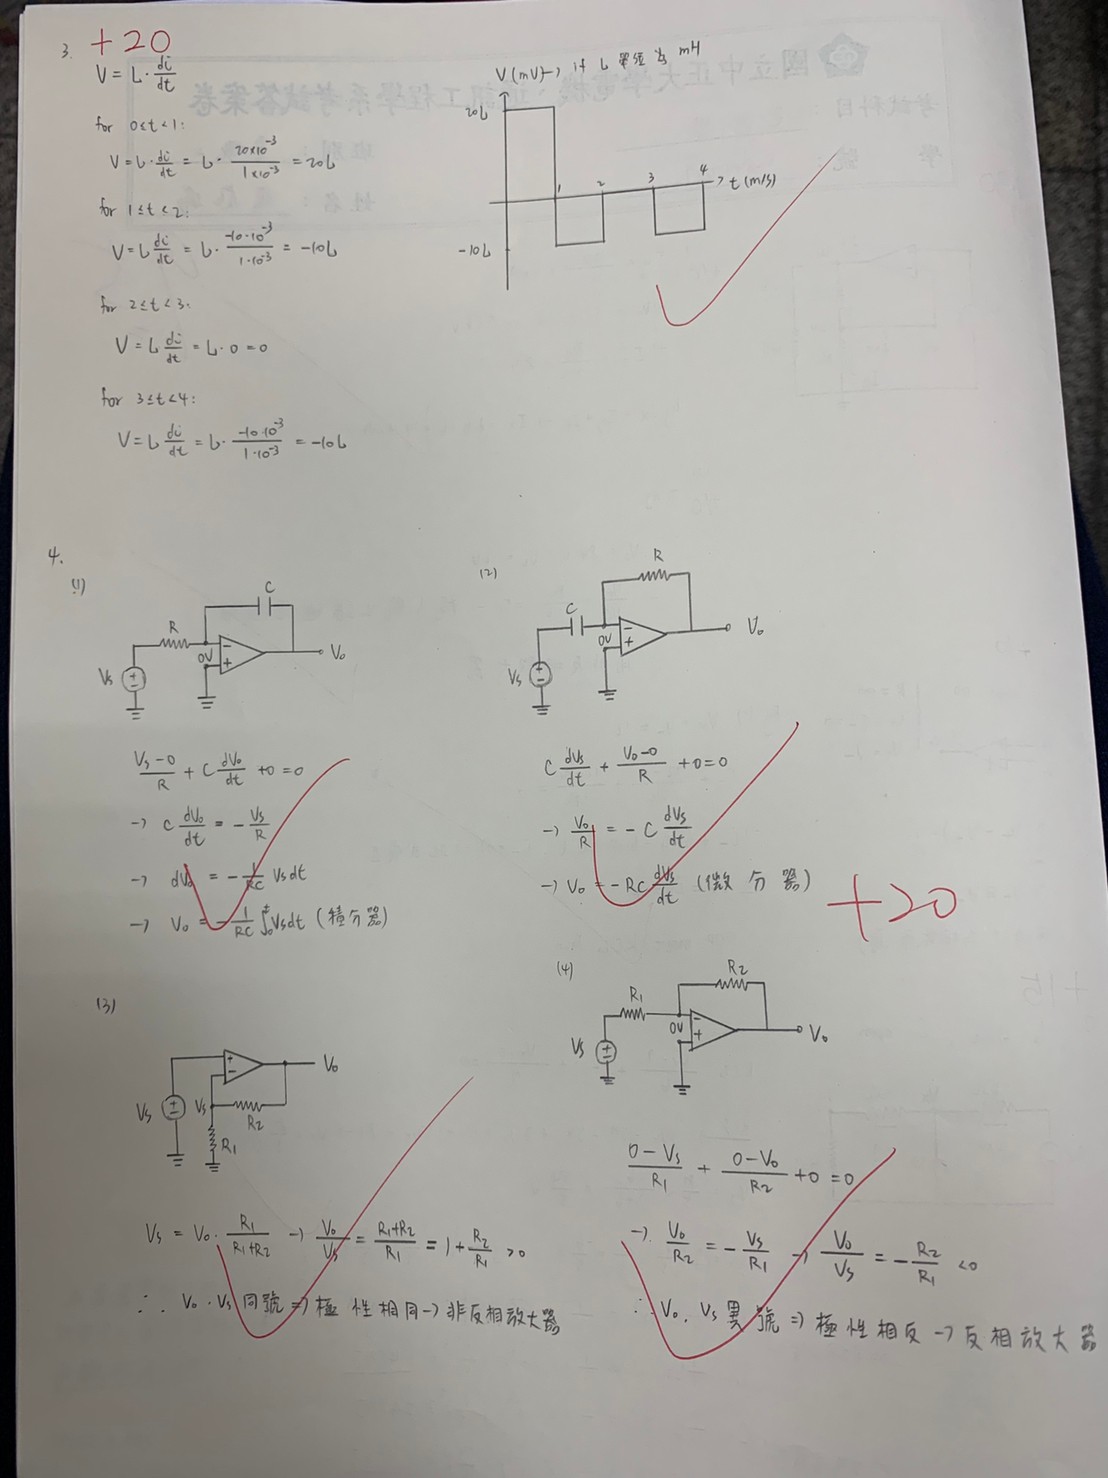 3. +20
V = L · di/dt
for 0≤t<1:
V = L · di/dt = L · 20×10⁻³/1×10⁻³ = 20L
for 1≤t<2:
V = L di/dt = L · -10·10⁻³/1·10⁻³ = -10L
for 2≤t<3:
V = L di/dt = L · 0 = 0
for 3≤t<4:
V = L di/dt = L · -10·10⁻³/1·10⁻³ = -10L
V(mV) → if L 單位為 mH
20L
1 2 3 4 t(m/s)
-10L
4.
(1)
C
R
0V
- +
Vs
Vo
(Vs-0)/R + C dVo/dt + 0 = 0
→ C dVo/dt = - Vs/R
→ dVo = - 1/RC Vs dt
→ Vo = - 1/RC ∫₀ᵗ Vs dt (積分器)
(2)
R
C
0V
- +
Vs
Vo
C dVs/dt + (Vo-0)/R + 0 = 0
→ Vo/R = - C dVs/dt
→ Vo = - RC dVs/dt (微分器)
+20
(3)
+ -
Vo
Vs
Vs
R2
R1
Vs = Vo · R1/(R1+R2) → Vo/Vs = (R1+R2)/R1 = 1 + R2/R1 > 0
∴ Vo、Vs 同號 ⇒ 極性相同 → 非反相放大器
(4)
R2
R1
0V
- +
Vs
Vo
(0-Vs)/R1 + (0-Vo)/R2 + 0 = 0
→ Vo/R2 = - Vs/R1 → Vo/Vs = - R2/R1 < 0
∴ Vo、Vs 異號 ⇒ 極性相反 → 反相放大器